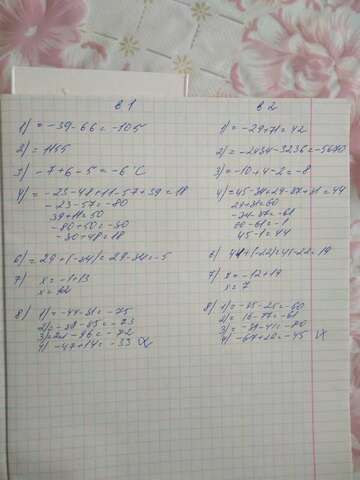 в 1
1) = -39-66 = -105
2) = 1165
3) -7+6-5 = -6°C
4) = -23-48+11-57+39 = 18
-23-57 = -80
39+11 = 50
-80+50 = -30
-30+48 = 18
6) = 29+(-34) = 29-34 = -5
7) x = -1+13
x = 12
8) 1) = -44-31 = -75
4) -47+14 = -33
в 2
1) = -29+71 = 42
2) = -2434-3236 = -5670
3) = -10+4-2 = -8
4) = 45-34+29-27+31 = 44
29+31 = 60
-34-27 = -61
60-61 = -1
45-1 = 44
6) 41+(-22) = 41-22 = 19
7) x = -12+19
x = 7
8) 1) = -35-25 = -60
3) = -39-41 = -80
4) -67+22 = -45